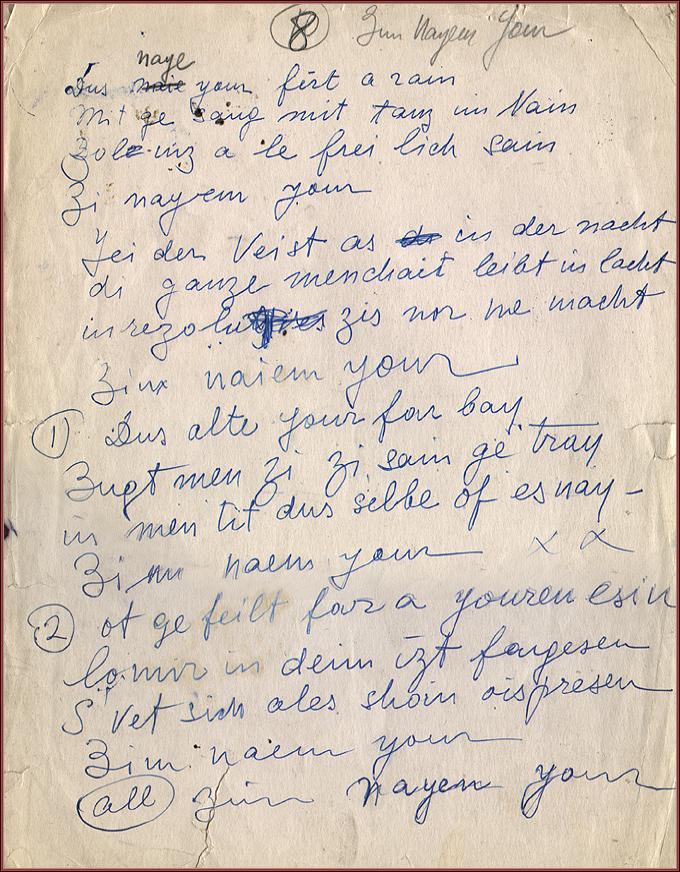 8 Zun Nayem Your
naye
Dus naie your fért a rain
Mit ge sang mit tanz in Vain
Zol inz a le frei lich sain
Zi nayem your
Zei den Veist as in der nacht
di ganze menchait leibt in lacht
in rezolu zis nor me macht
Zinx naiem your
1) Dus alte your far bay
Zugt men zi zi sain ge tray
in men tit dus selbe of es nay -
Zim naem your x x
2 ot ge feilt far a youren esin
lomir in deim izt fargesen
S'vet sich ales shoin oispresen
Zim naem your
all zim nayem your